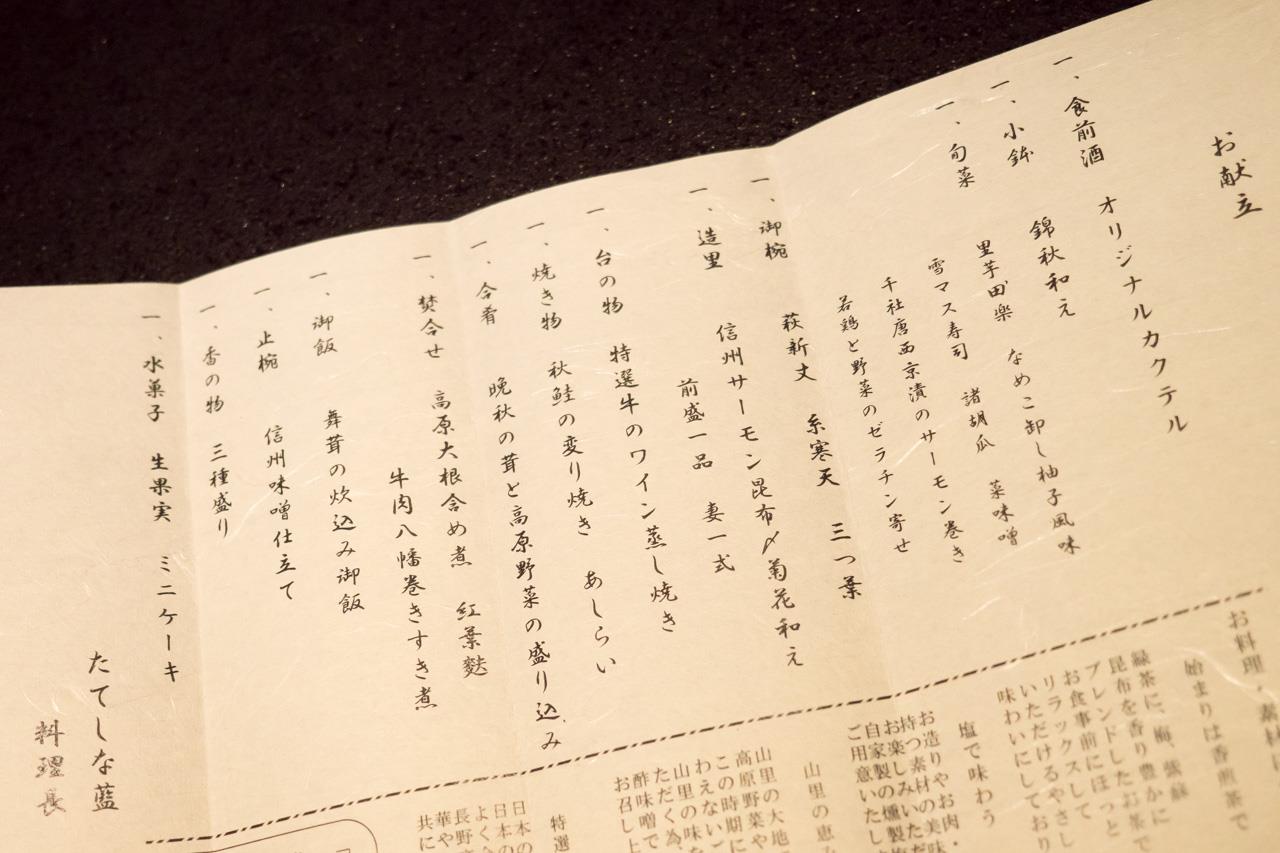 お献立
一、食前酒 オリジナルカクテル
一、小鉢 錦秋和え なめこ卸し柚子風味
一、旬菜 里芋田楽 諸胡瓜 菜味噌
雪マス寿司
千社唐西京漬のサーモン巻き
若鶏と野菜のゼラチン寄せ
一、御椀 萩新丈 糸寒天 三つ葉
一、造里 信州サーモン昆布〆菊花和え
前盛一品 妻一式
一、台の物 特選牛のワイン蒸し焼き
一、焼き物 秋鮭の変り焼き あしらい
一、合肴 晩秋の茸と高原野菜の盛り込み
一、焚合せ 高原大根含め煮 紅葉麩
牛肉八幡巻きすき煮
一、御飯 舞茸の炊込み御飯
一、止椀 信州味噌仕立て
一、香の物 三種盛り
一、水菓子 生果実 ミニケーキ
たてしな藍
料理長
お料理・素材に
始まりは香煎茶で
緑茶に、梅、紫蘇
昆布を香り豊かに
ブレンドしたお茶で
お食事前にほっと
リラックスして
いただけるやさし
味わいにしており
塩で味わう
お造りやお肉・
持つ素材の美味
お楽しみいただ
自家製の燻製塩
ご用意いたし
山里の恵み
山里の大地
高原野菜や
この時期に
わえない
山里の味を
ただく為
酢味噌で
お召し上
特選
日本の
日本の
よく
長野
華や
共に